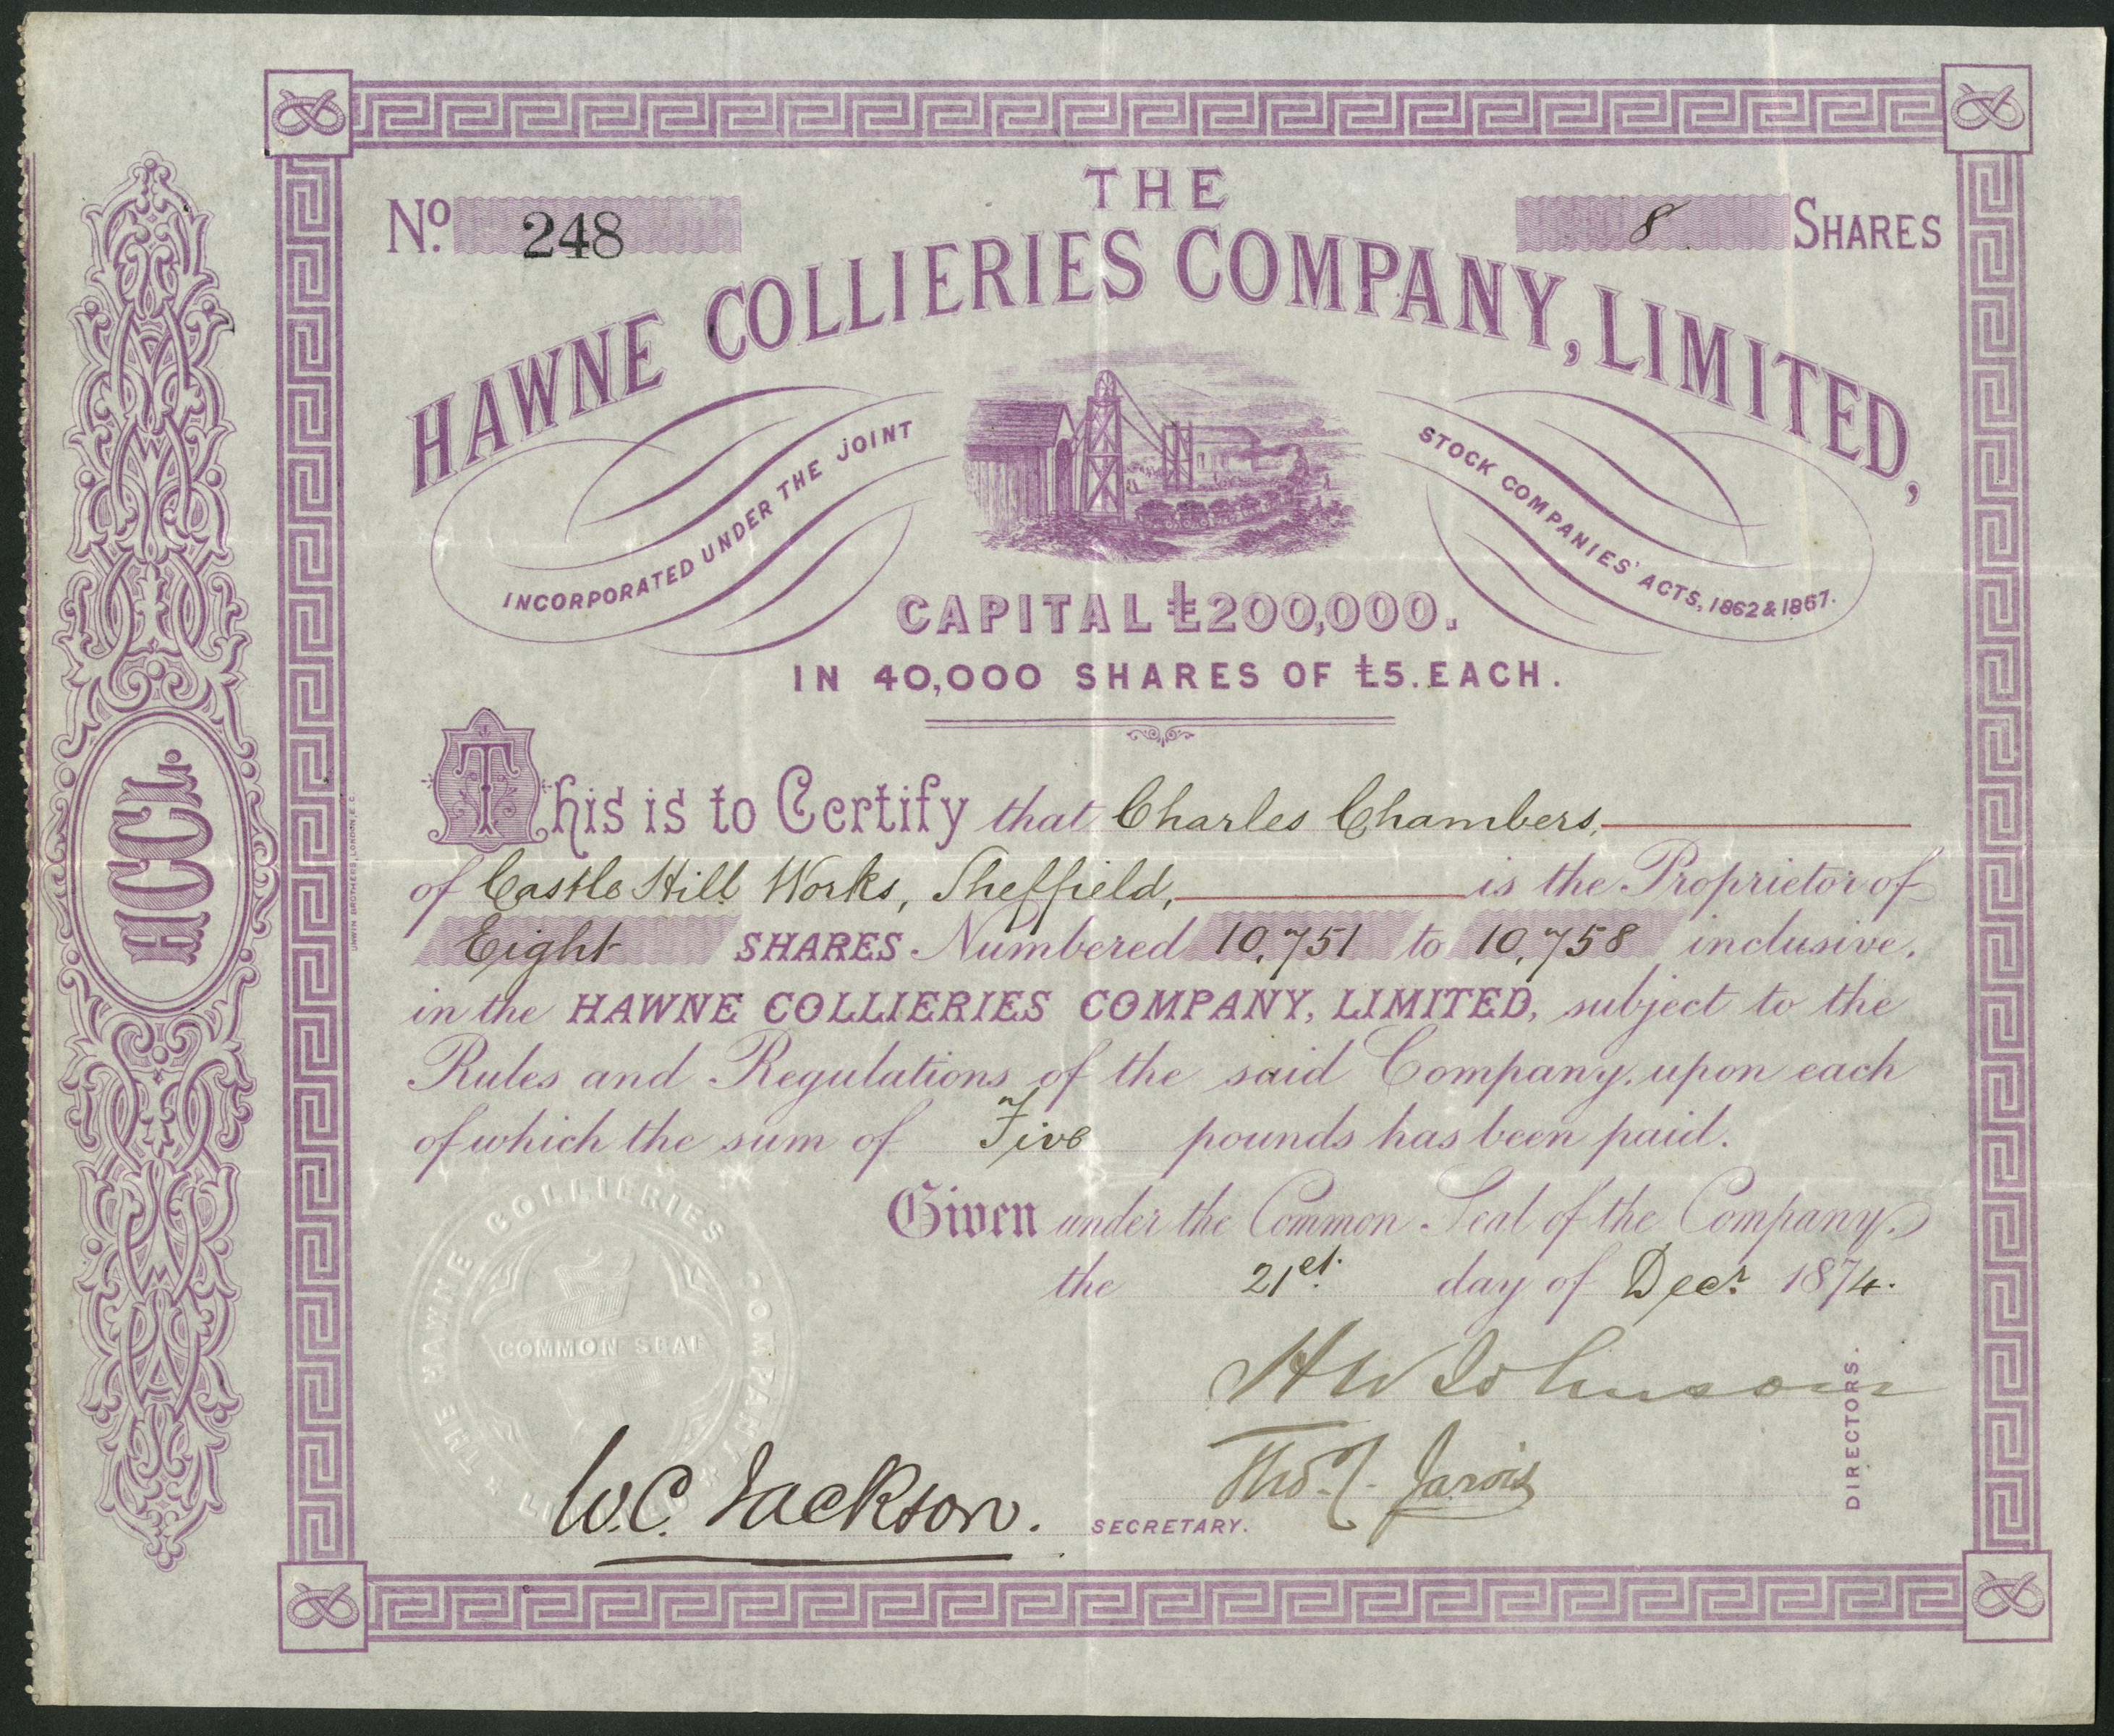 No. 248
8 SHARES
THE
HAWNE COLLIERIES COMPANY, LIMITED,
INCORPORATED UNDER THE JOINT
STOCK COMPANIES' ACTS, 1862 & 1867.
CAPITAL £200,000.
IN 40,000 SHARES OF £5. EACH.
This is to Certify that Charles Chambers,
of Castle Hill Works, Sheffield, is the Proprietor of
Eight SHARES Numbered 10,751 to 10,758 inclusive,
in the HAWNE COLLIERIES COMPANY, LIMITED, subject to the
Rules and Regulations of the said Company, upon each
of which the sum of Five pounds has been paid.
Given under the Common Seal of the Company,
the 21st day of Decr 1874.
H W Johnson
Thos. Jarvis
DIRECTORS.
W.C. Jackson.
SECRETARY.
THE HAWNE COLLIERIES COMPANY LIMITED
COMMON SEAL
HCCL.
UNWIN BROTHERS, LONDON, E.C.